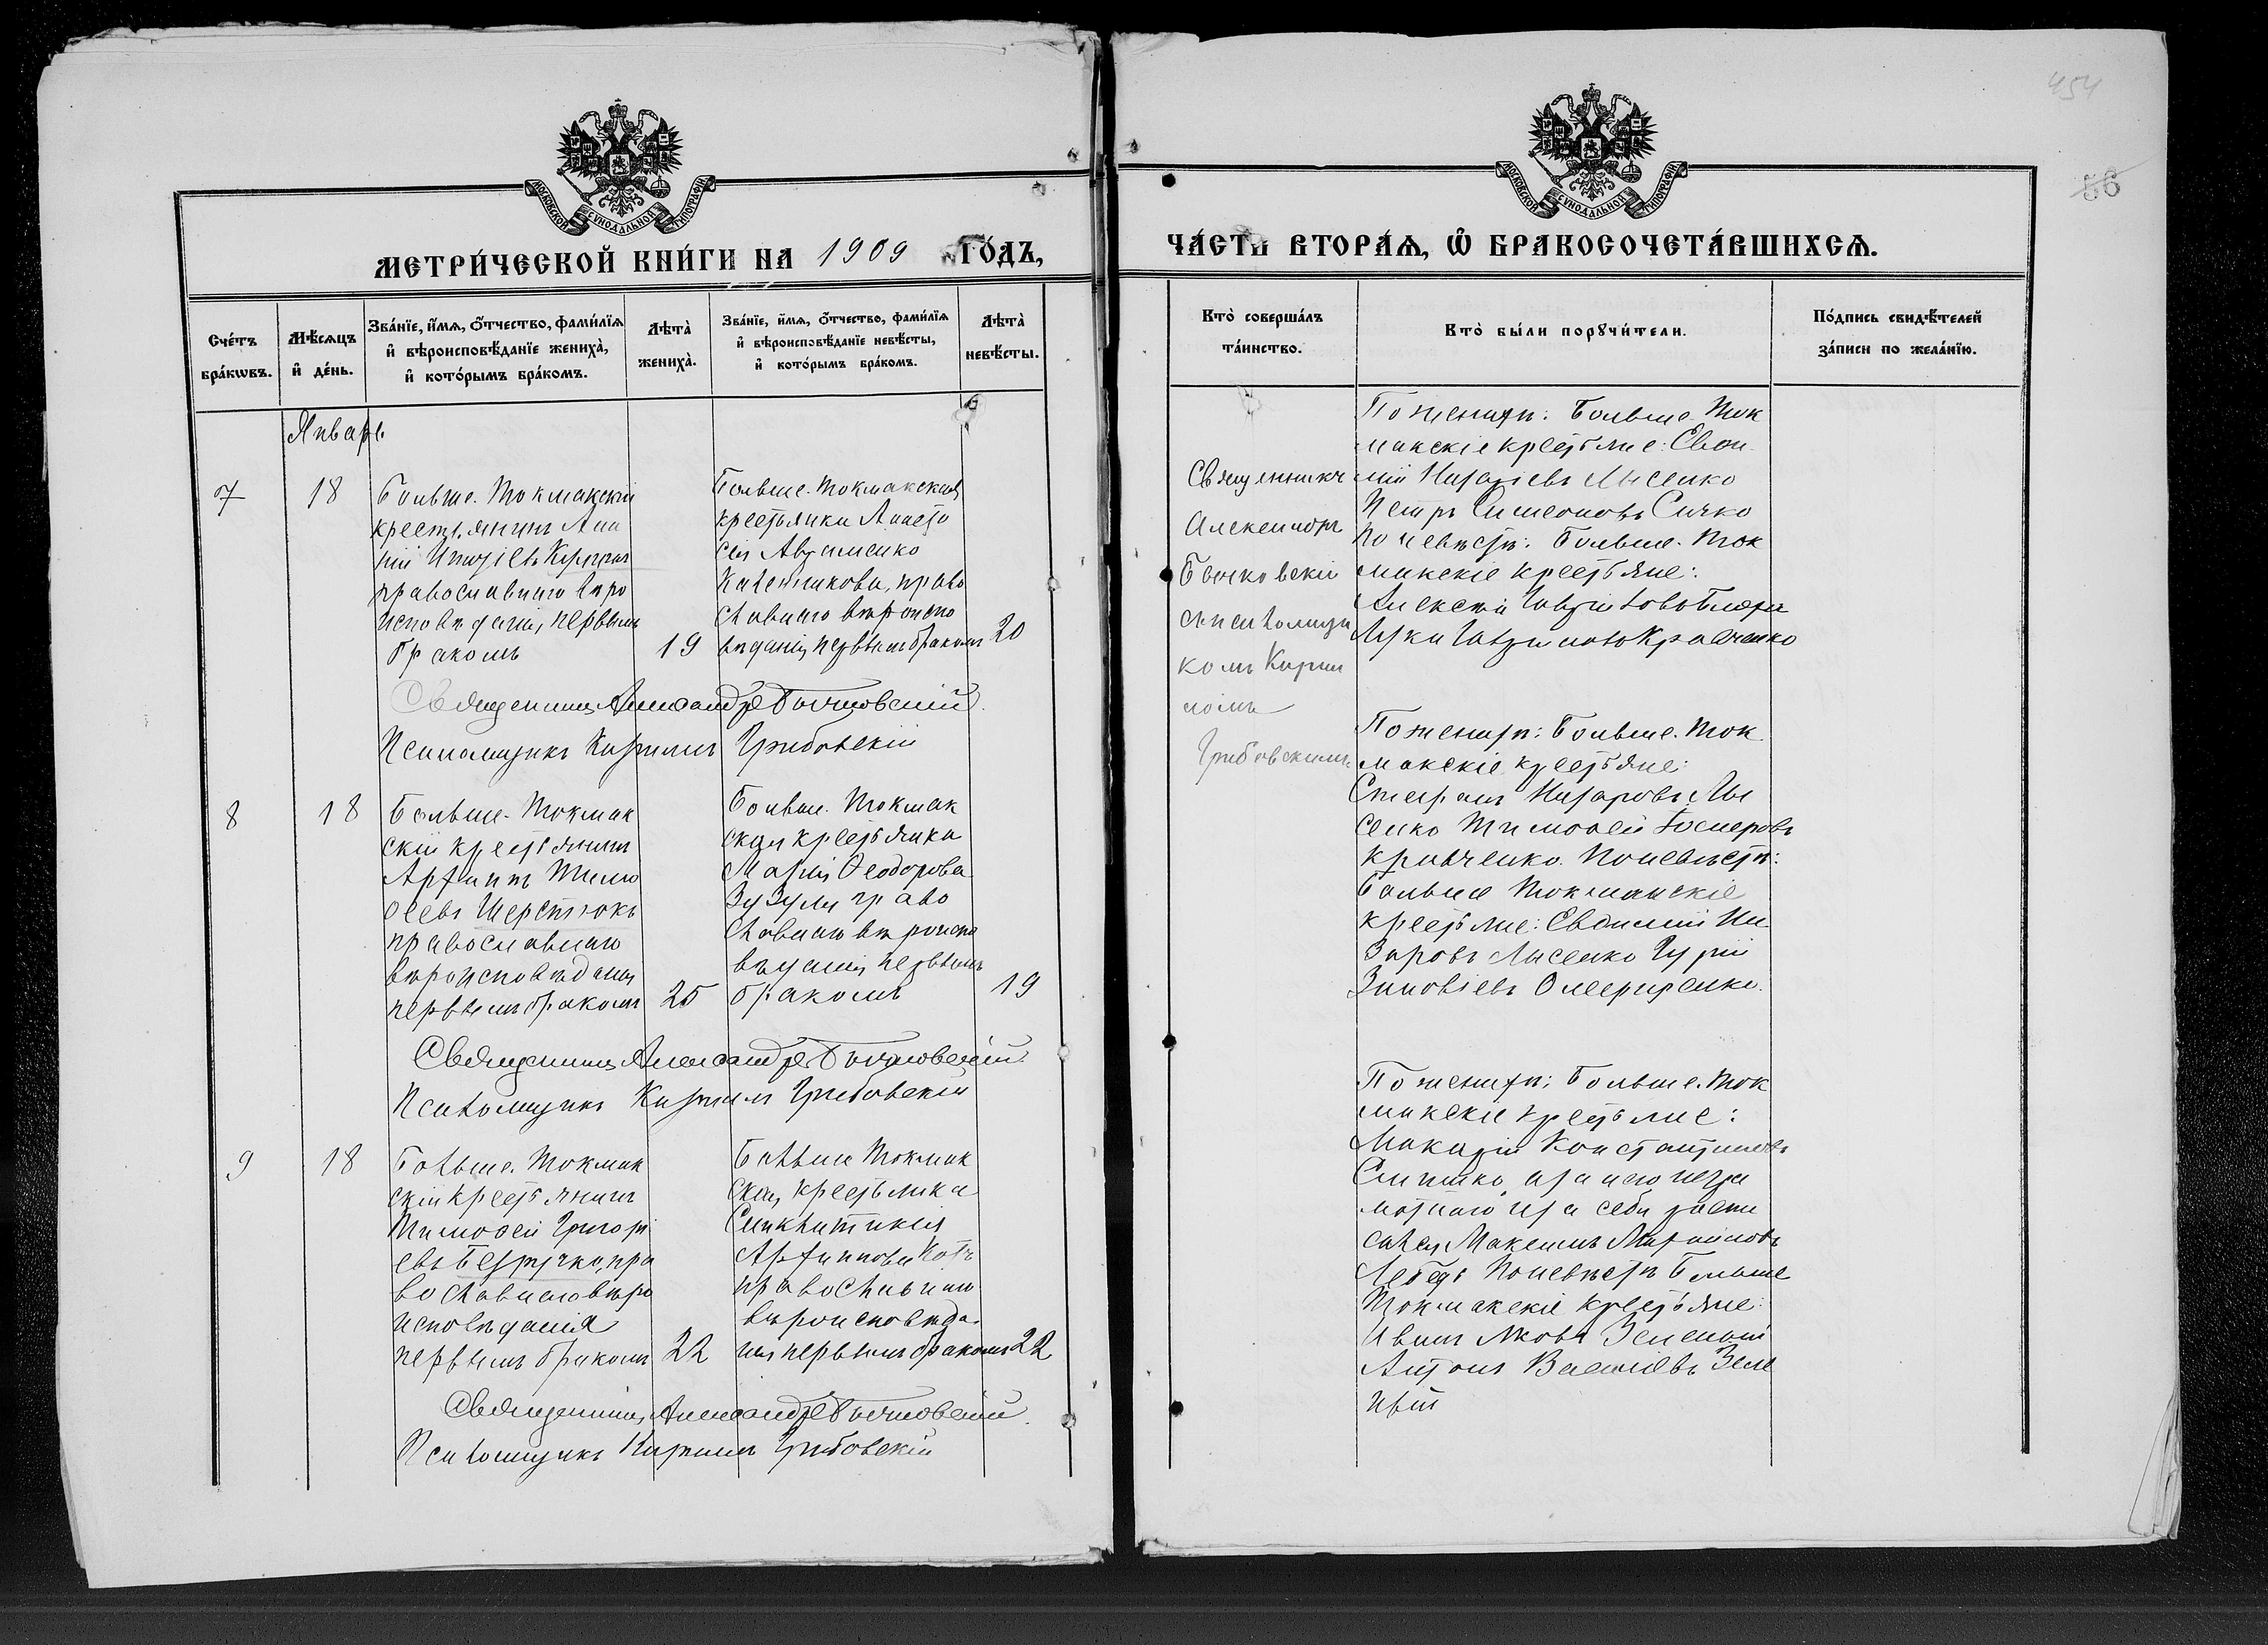 454
56
МОСКОВСКОЙ СѴНОДАЛЬНОЙ ТИПОГРАФІИ
МЕТРИ́ЧЕСКОЙ КНИ́ГИ НА 1909 ГО́ДЪ,
Сче́тъ бра́кωвъ.
Мѣ́сяцъ и҆ де́нь.
Зва́нїе, и҆́мѧ, ѻ҆́тчество, фами́лїѧ
и҆ вѣроисповѣ́данїе жениха̀,
и҆ кото́рымъ бра́комъ.
Лѣта̀
жениха̀.
Зва́нїе, и҆́мѧ, ѻ҆́тчество, фами́лїѧ
и҆ вѣроисповѣ́данїе невѣ́сты,
и҆ кото́рымъ бра́комъ.
Лѣта̀
невѣ́сты.
Январь
7
18
Больше-Токмакскій
крестьянинъ
православнаго вѣро
исповѣданія, первымъ
бракомъ
19
Больше-Токмакская
крестьянка Анаста
сія Авраменко
право
славнаго вѣроиспо
вѣданія, первымъ бракомъ
20
Священникъ Александръ
Псаломщикъ Кириллъ Грибовскій
8
18
Больше-Токмак
скій крестьянинъ
Архипъ Тимо
ѳеевъ Шерстюкъ
православнаго
вѣроисповѣданія
первымъ бракомъ
25
Больше-Токмак
ская крестьянка
Марія Ѳеодорова
Зузуля право
славнаго вѣроиспо
вѣданія первымъ
бракомъ
19
Священникъ Александръ
Псаломщикъ Кириллъ Грибовскій
9
18
Больше-Токмак
скій крестьянинъ
Тимоѳей Григорі
евъ Безручко, пра
вославнаго вѣро
исповѣданія
первымъ бракомъ
22
Больше Токмак
ская крестьянка
Синклитикія
Архиппова Котъ
православнаго
вѣроисповѣда-
нія первымъ бракомъ
22
Священникъ Александръ
Псаломщикъ Кириллъ Грибовскій
МОСКОВСКОЙ СѴНОДАЛЬНОЙ ТИПОГРАФІИ
ЧА́СТЬ ВТОРА́Ѧ, Ѽ БРАКОСОЧЕТА́ВШИХСѦ.
Кто̀ соверша́лъ
та́инство.
Кто̀ бы́ли порꙋчи́тели.
По́дпись свидѣ́телей
за́писи по жела́нїю.
Священникъ
Александръ
съ псаломщи
комъ Кирил
ломъ
Грибовскимъ
По женихѣ: Больше-Ток
макскіе крестьяне: Евѳи
мій Назаріевъ Лысенко
Петръ Симеоновъ Сичко
По невѣстѣ: Больше-Ток
макскіе крестьяне:
Алексѣй
Лука Кравченко
По женихѣ: Больше-Ток
макскіе крестьяне:
Стефанъ Назаровъ Лы
сенко Тимоѳей
Кравченко. По невѣстѣ:
Больше Токмакскіе
крестьяне: Евѳимій На
заровъ Лысенко Гурій
Зиновіевъ
По женихѣ: Больше-Ток
макскіе крестьяне:
Макарій Константиновъ
а за него негра
мотнаго и за себя роспи
сался Максимъ
Лебедь По невѣстѣ Больше
Токмакскіе крестьяне:
Иванъ Яковъ Зеленый
Антонъ Василіевъ Зеле
ный